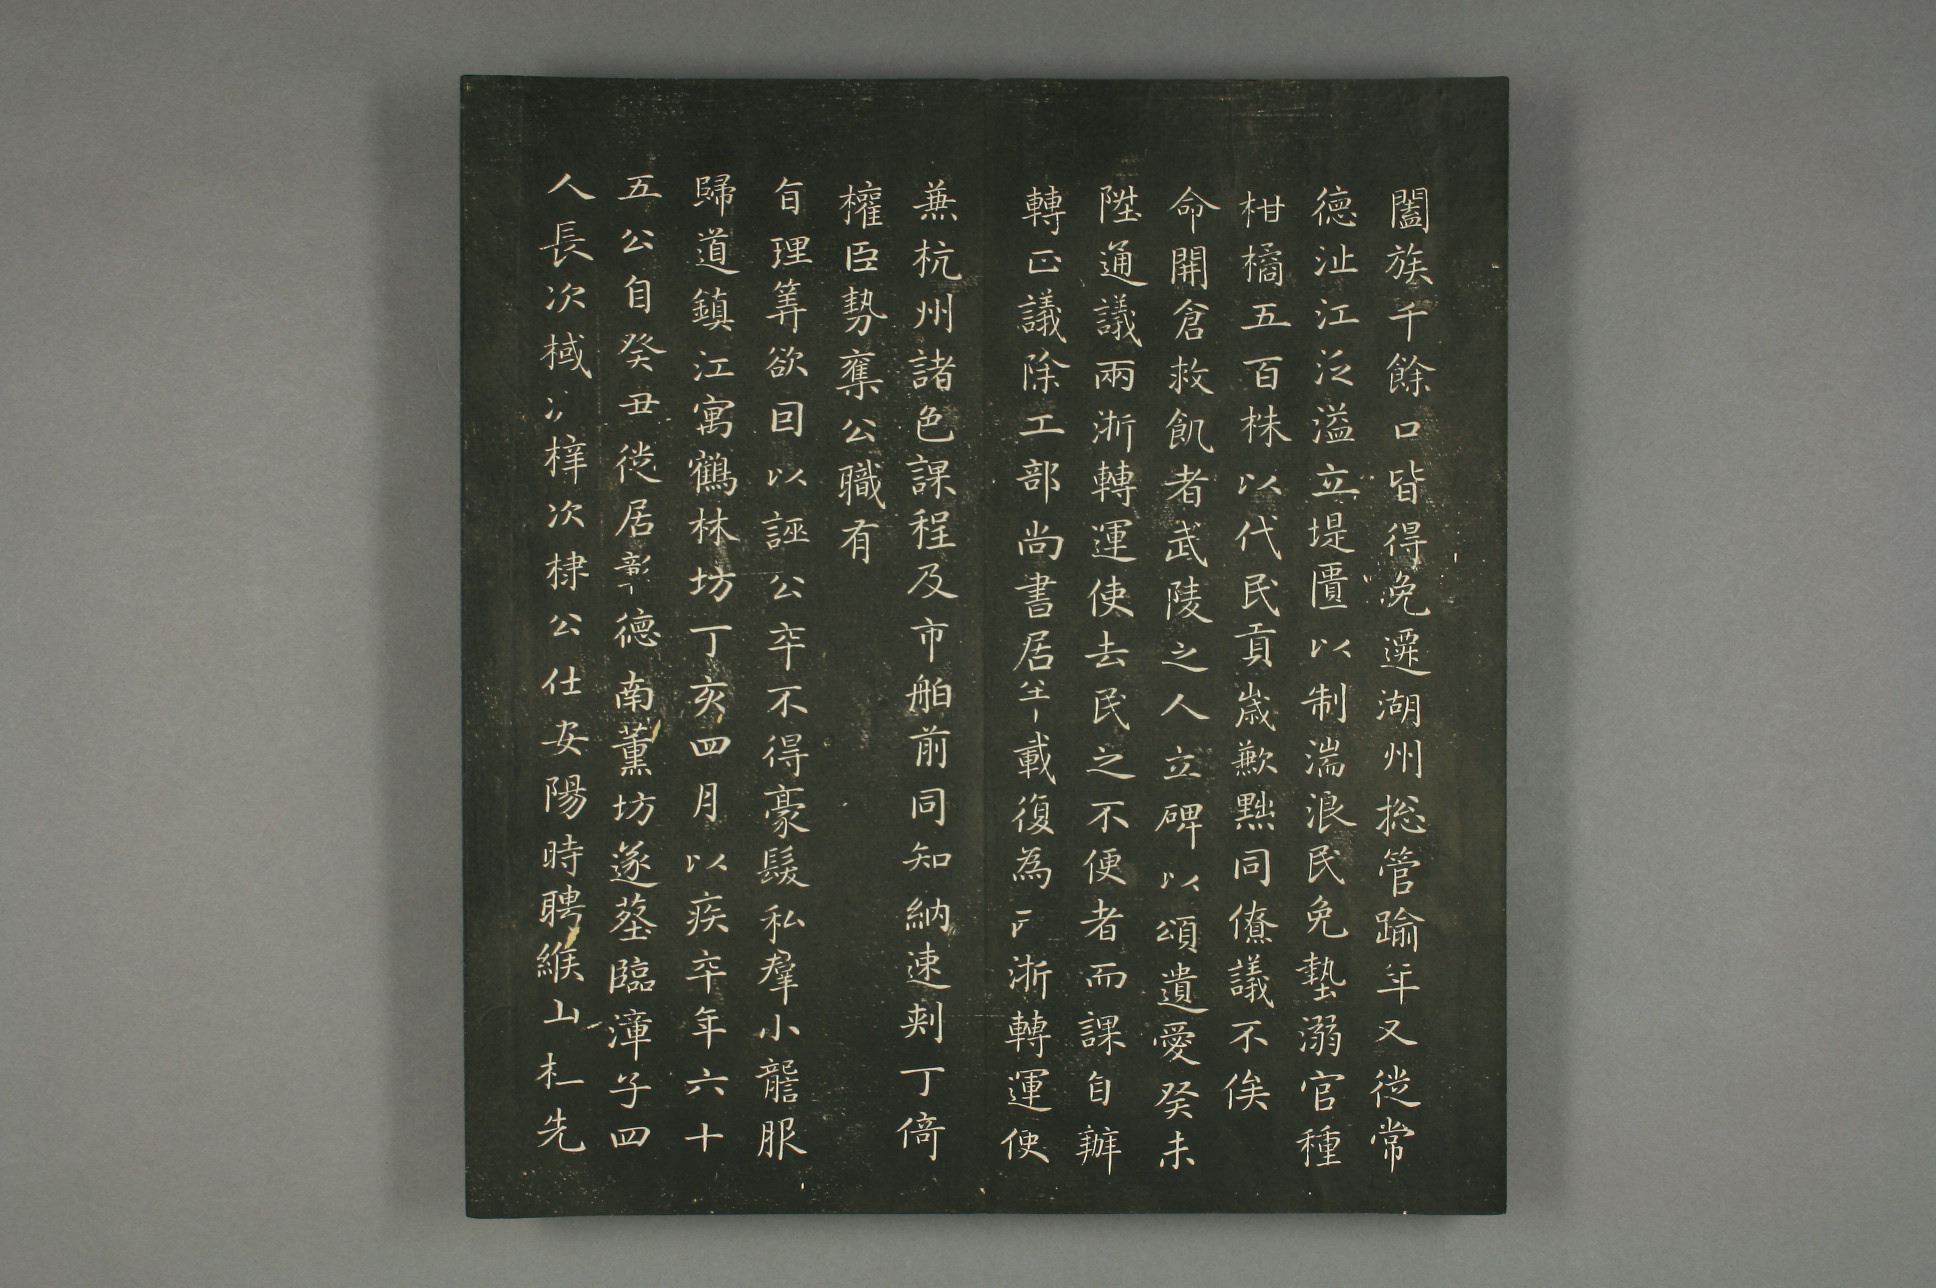 闔族千餘口皆得免遷湖州総管踰年又徙常
德沚江泛溢立堤匱以制湍浪民免墊溺官種
柑橘五百株以代民貢歲歉黜同僚議不俟
命開倉救飢者武陵之人立碑以頌遺愛癸未
陞通議兩浙轉運使去民之不便者而課自辦
轉正議除工部尚書居半載復為兩浙轉運使
蕪杭州諸色課程及市舶前同知納速剌丁倚
權臣勢奪公職有
旨理筭欲因以誣公卒不得豪髮私羣小讋服
歸道鎮江寓鶴林坊丁亥四月以疾卒年六十
五公自癸丑徙居彰德南薰坊遂塟臨漳子四
人長次棫次梓次棣公仕安陽時聘緱山杜先